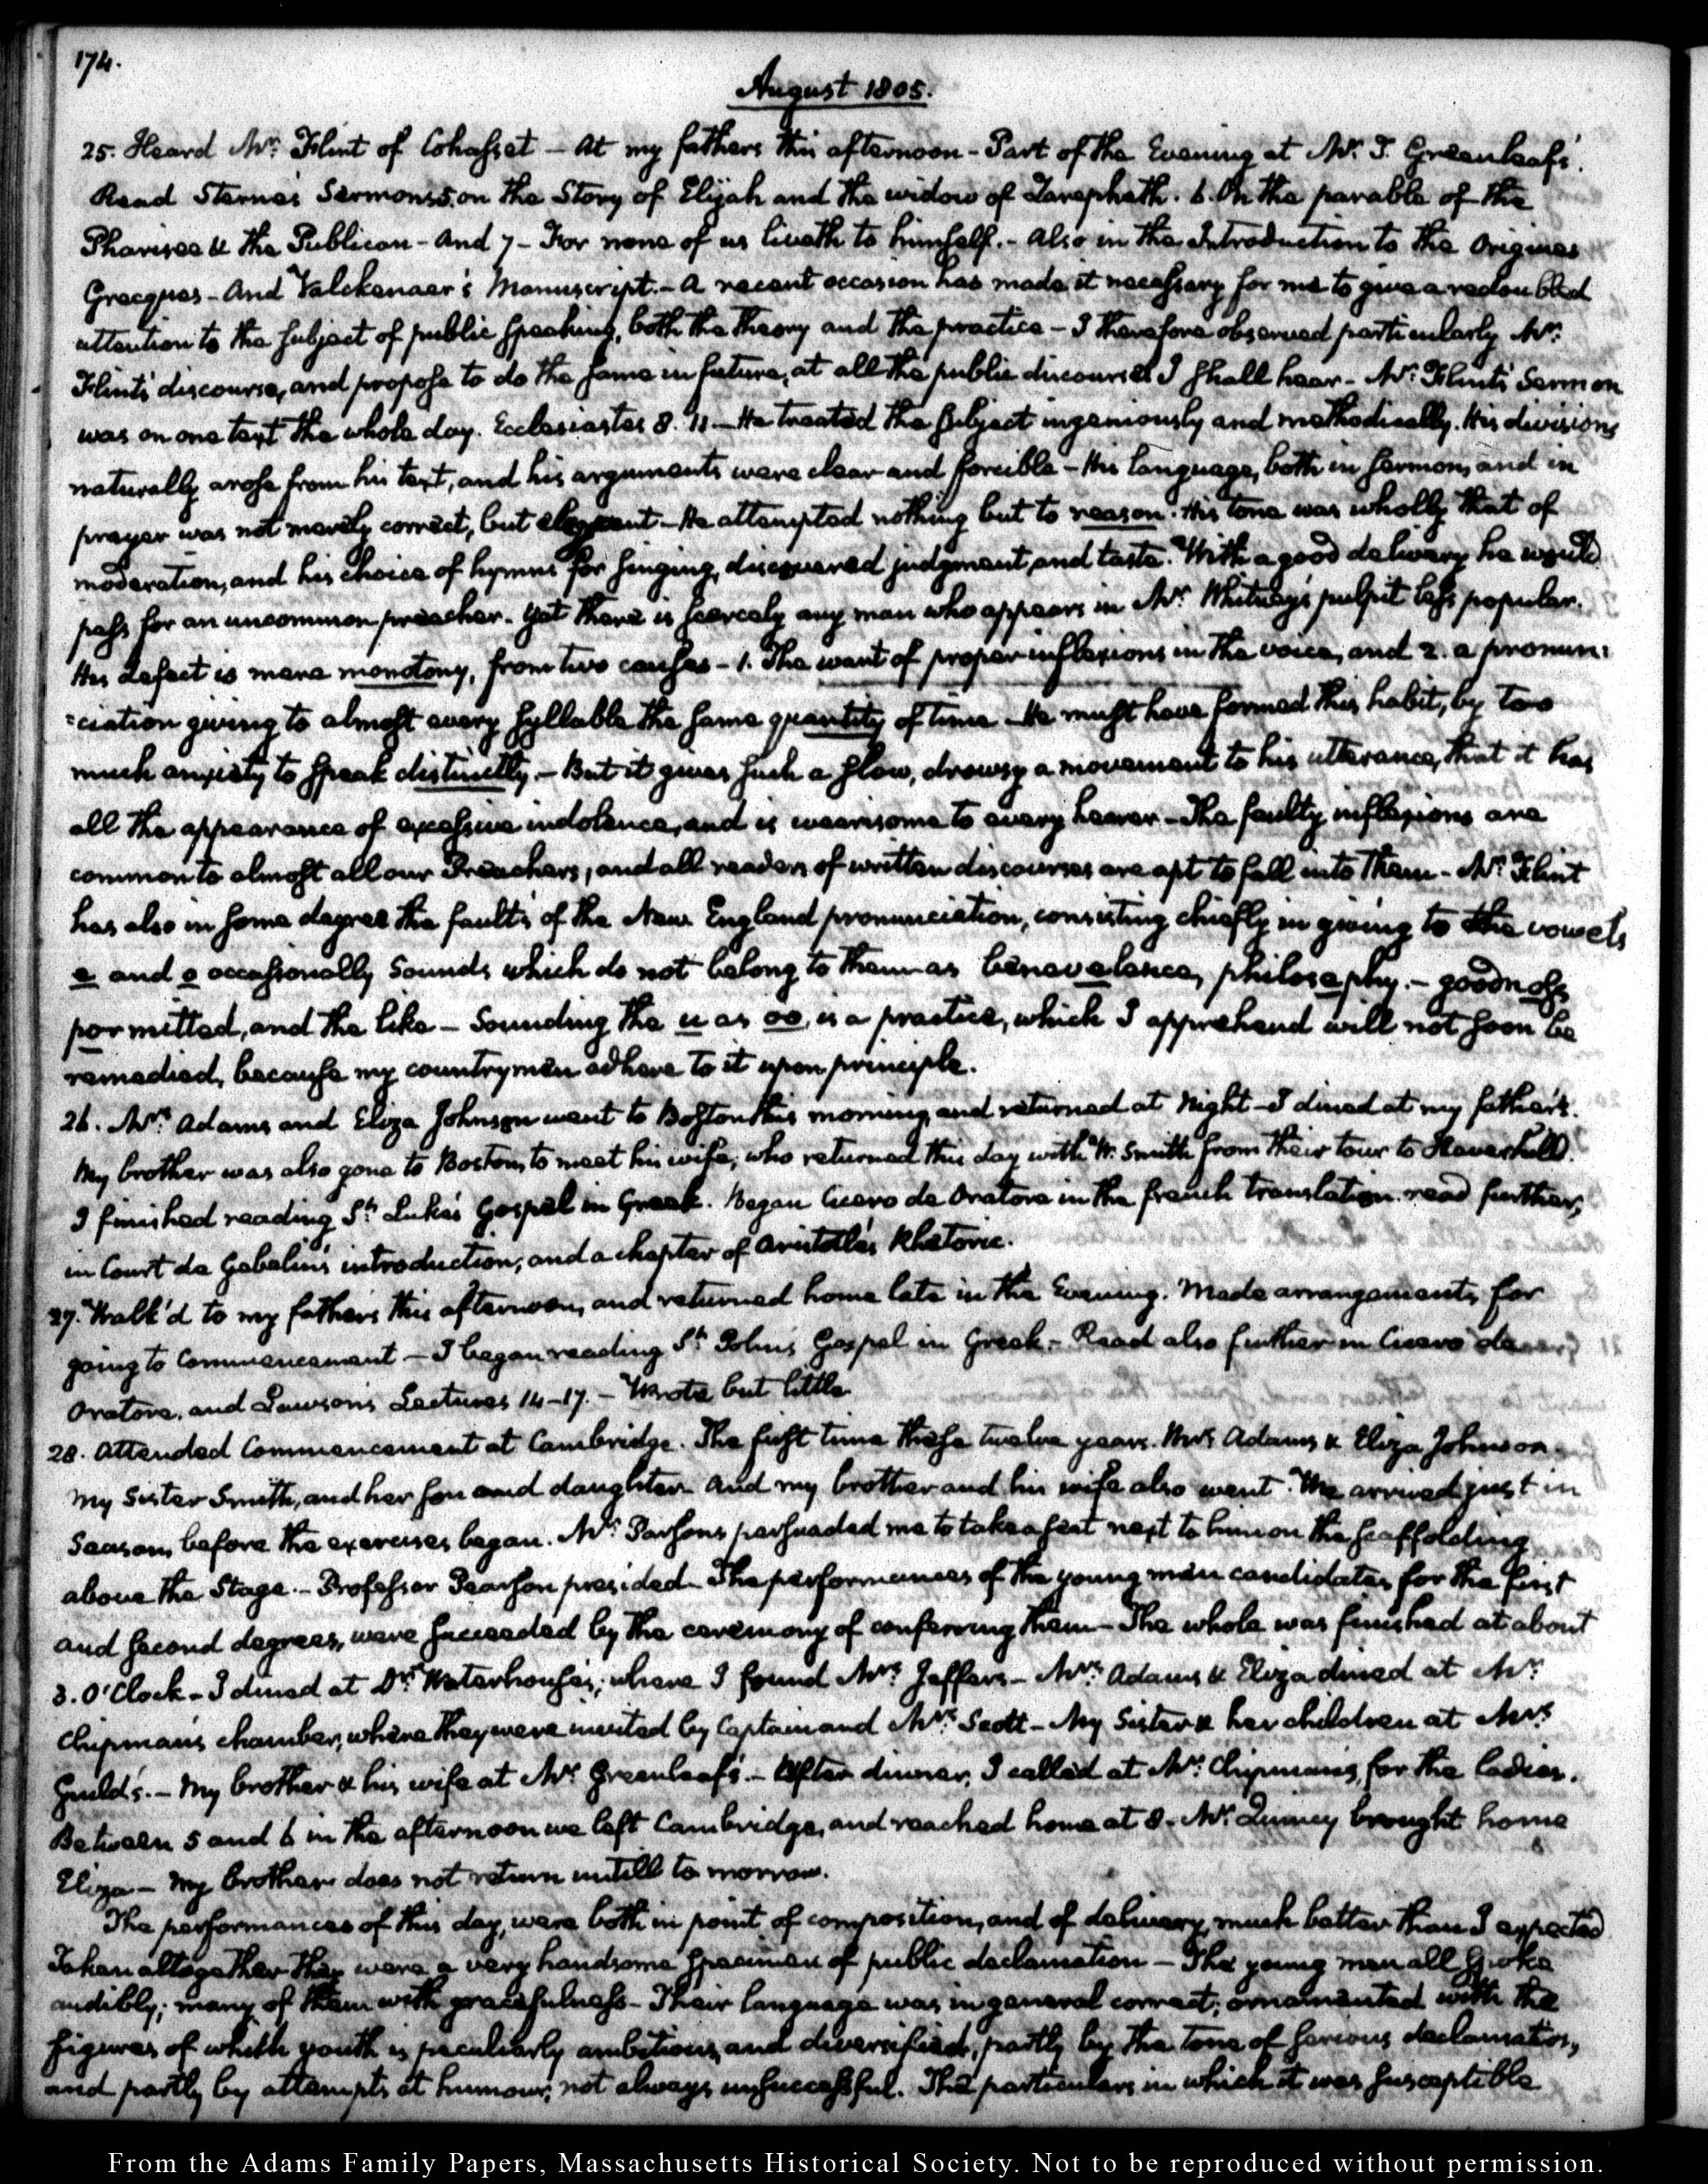 174.
August 1805.
25. Heard Mr. Flint of Cohasset — At my fathers this afternoon - Part of the Evening at Mr. T. Greenleaf's.
Read Sterne's Sermons 5. on the Story of Elijah and the widow of Zarephath. 6. On the parable of the
Pharisee & the Publican - And 7 - For none of us liveth to himself. - Also in the Introduction to the Origines
Grecques - And Valckenaer's Manuscript. - A recent occasion has made it necessary for me to give a redoubled
attention to the subject of public speaking, both the theory and the practice - I therefore observed particularly Mr.
Flint's discourse, and propose to do the same in future, at all the public discourses I shall hear - Mr. Flint's Sermon
was on one text the whole day. Ecclesiastes 8. 11. - He treated the subject ingeniously and methodically. His divisions
naturally arose from his text, and his arguments were clear and forcible - His language, both in sermon, and in
prayer was not merely correct, but elegant - He attempted nothing but to reason. His tone was wholly that of
moderation, and his choice of hymns for singing, discovered judgment, and taste. With a good delivery he would
pass for an uncommon preacher. Yet there is scarcely any man who appears in Mr. Whitney's pulpit less popular.
His defect is mere monotony, from two causes - 1. The want of proper inflexions in the voice, and 2. a pronun:
:ciation giving to almost every syllable the same quantity of time - He must have formed this habit, by too
much anxiety to speak distinctly. - But it gives such a slow, drowsy a movement to his utterance, that it has
all the appearance of excessive indolence, and is wearisome to every hearer - The faulty inflexions are
common to almost all our Preachers, and all readers of written discourses are apt to fall into them - Mr. Flint
has also in some degree the faults of the New England pronunciation, consisting chiefly in giving to the vowels
e and o occasionally sounds which do not belong to them as benevalence, philosephy. - goodnoss
pormitted, and the like - Sounding the u as oo, is a practice, which I apprehend will not soon be
remedied, because my countrymen adhere to it upon principle.
26. Mrs. Adams and Eliza Johnson went to Boston this morning, and returned at Night - I dined at my father's.
My brother was also gone to Boston, to meet his wife, who returned this day with Mr. Smith from their tour to Haverhill.
I finished reading St. Luke's Gospel in Greek. Began Cicero de Oratore in the french translation. read further,
in Court de Gebelin's introduction, and a chapter of Aristotle's Rhetoric.
27. Walk'd to my fathers this afternoon, and returned home late in the Evening. Made arrangements, for
going to Commencement - I began reading St. John's Gospel in Greek - Read also further in Cicero de
Oratore, and Lawson's Lectures 14-17. - Wrote but little.
28. Attended Commencement at Cambridge. The first time these twelve years. Mrs. Adams & Eliza Johnson
My Sister Smith, and her son and daughter. And my brother and his wife also went. We arrived just in
Season, before the exercises began. Mr. Parsons persuaded me to take a seat next to him on the scaffolding
above the Stage. - Professor Pearson presided - The performances of the young men candidates for the first
and second degrees, were succeeded by the ceremony of conferring them - The whole was finished at about
3. O'Clock - I dined at Dr. Waterhouse's, where I found Mrs. Jeffers - Mrs. Adams & Eliza dined at Mr.
Chipman's chamber, where they were invited by Captain and Mrs. Scott - My Sister & her children at Mrs.
Guild's. - My brother & his wife at Mr. Greenleaf's. - After dinner, I called at Mr. Chipman's, for the ladies.
Between 5 and 6 in the afternoon we left Cambridge, and reached home at 8. Mr. Quincy brought home
Eliza - My brother does not return untill to morrow.
The performances of this day, were both in point of composition, and of delivery, much better than I expected
Taken altogether they were a very handsome specimen of public declamation - The young men all spoke
audibly; many of them with gracefulness - Their language was in general correct; ornamented with the
figures of which youth is peculiarly ambitious, and diversified, partly by the tone of serious declamation,
and partly by attempts at humour, not always unsuccessful. The particulars in which it was susceptible
From the Adams Family Papers, Massachusetts Historical Society. Not to be reproduced without permission.